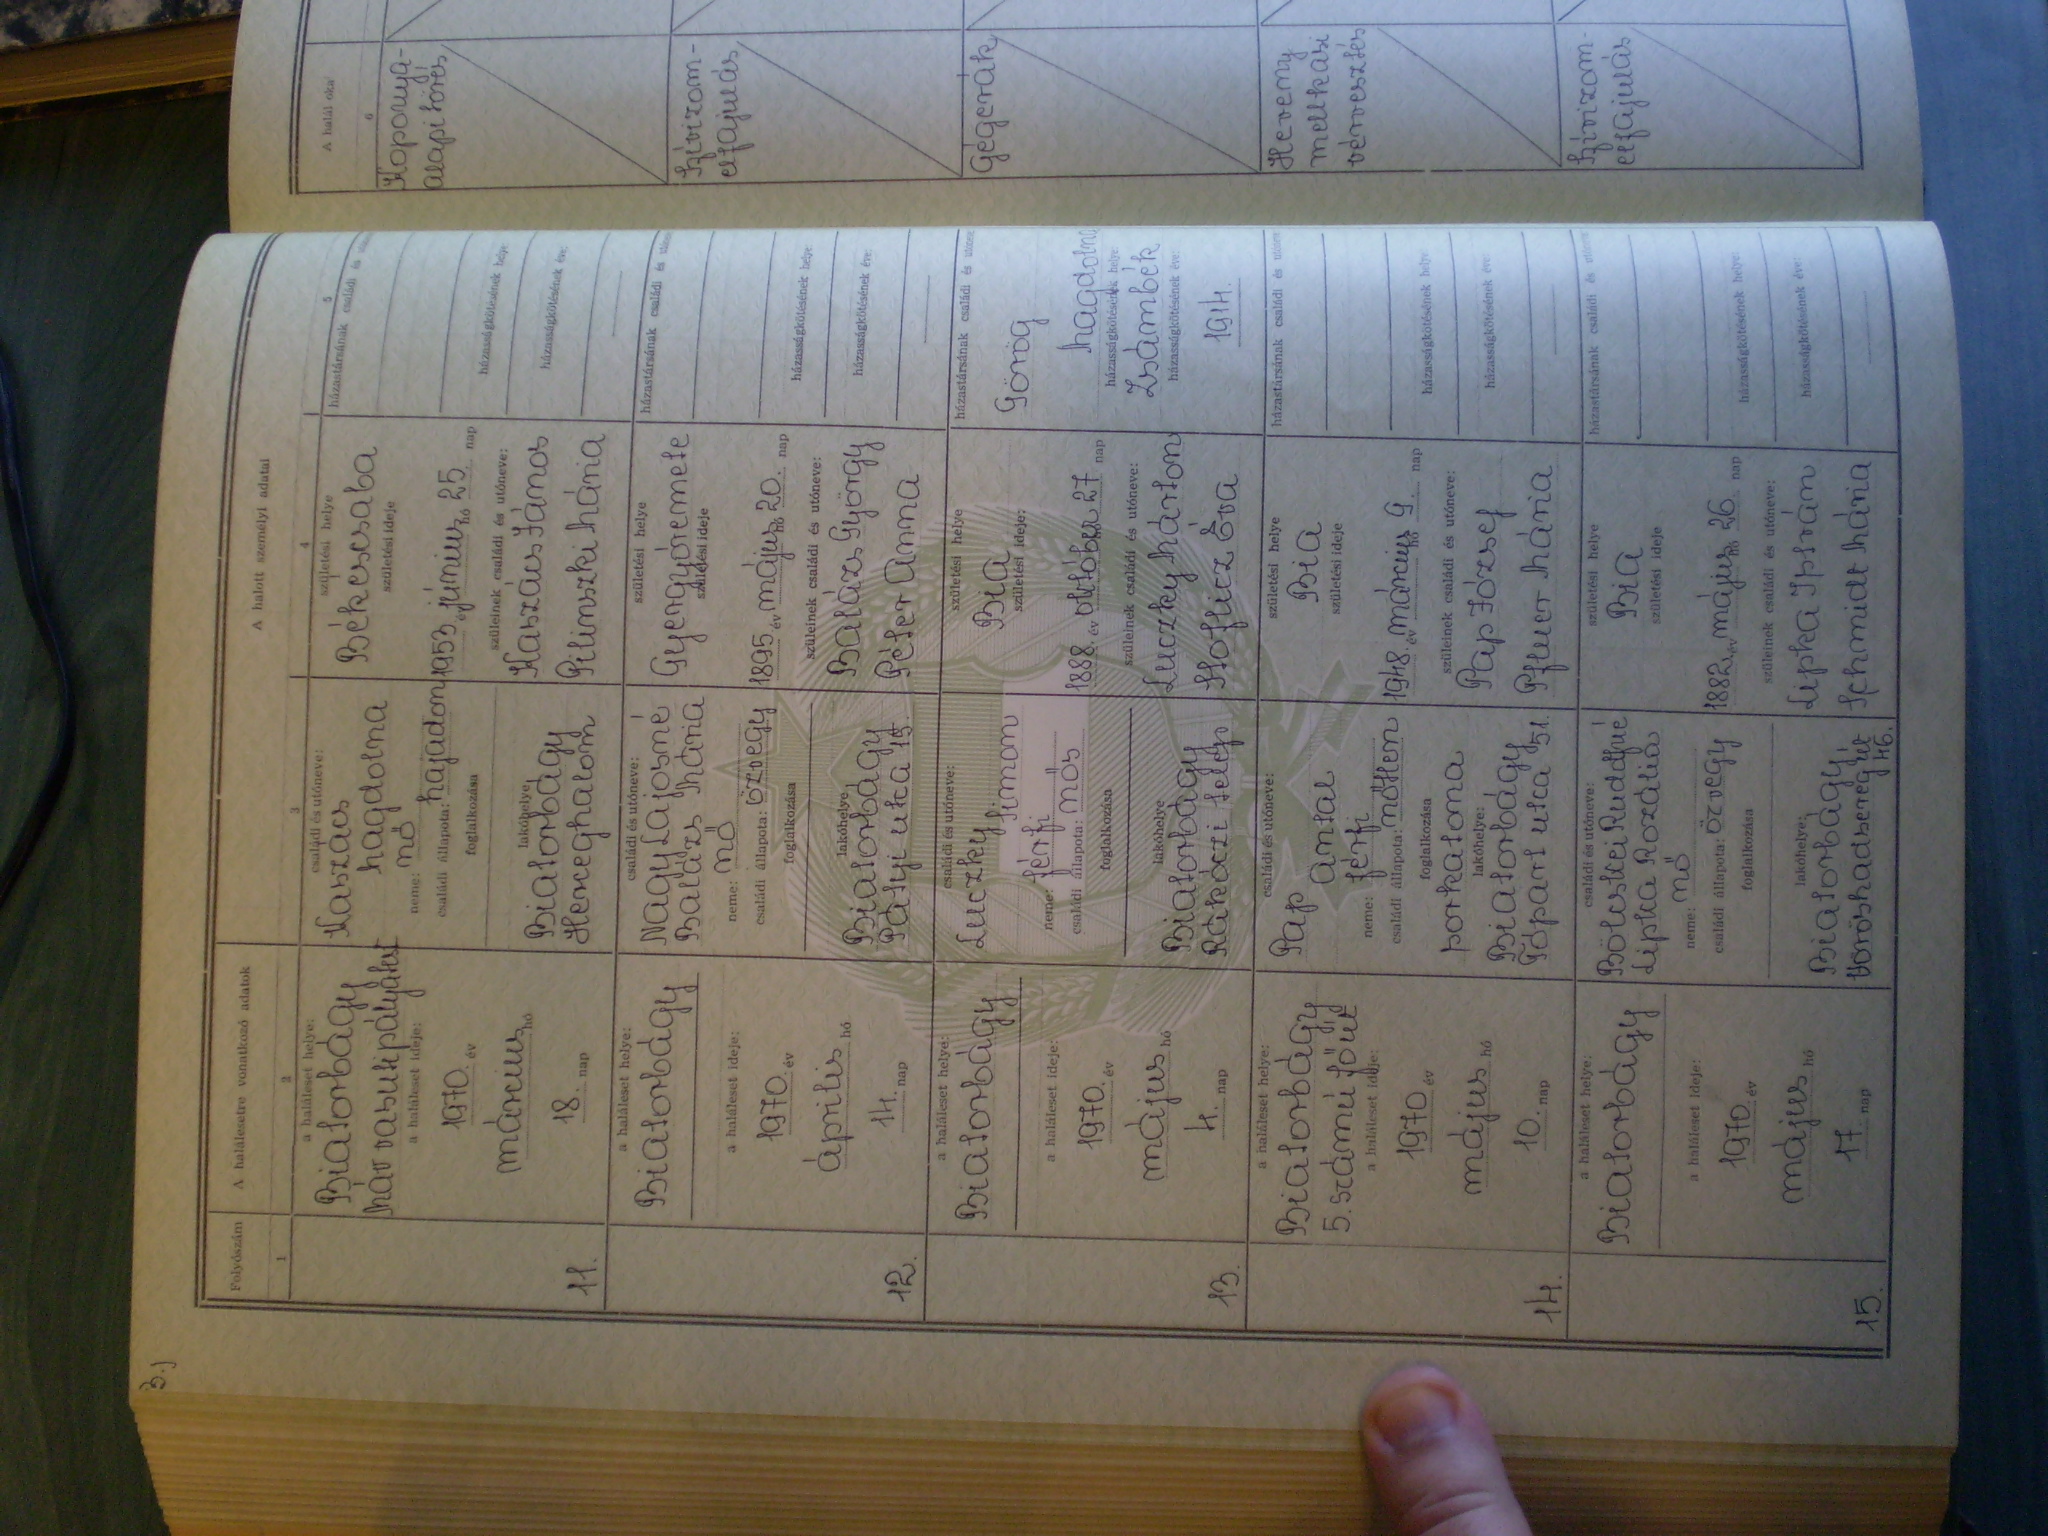 3.)
Folyószám
A halálesetre vonatkozó adatok
A halott személyi adatai
A halál oka
1
2
3
4
5
6
11.
a haláleset helye:
Biatorbágy
Máv vasutipályatest
a haláleset ideje:
1970. év
március hó
18. nap
családi és utóneve:
Kaszács
Magdolna
neme: nő
családi állapota: hajadon
foglalkozása
lakóhelye
Biatorbágy
Herceghalom
születési helye
Békéscsaba
születési ideje
1953 év június hó 25. nap
szüleinek családi és utóneve:
Kaszács János
Pilinszki Mária
házastársának családi és utóneve
házasságkötésének helye
házasságkötésének éve:
Koponya-
alapi törés
12.
a haláleset helye:
Biatorbágy
a haláleset ideje:
1970. év
április hó
14. nap
családi és utóneve:
Nagy Lajosné
Balázs Mária
neme: nő
családi állapota: özvegy
foglalkozása
lakóhelye
Biatorbágy
Patyi utca 15
születési helye
Gyergyóremete
születési ideje
1895. év május hó 20. nap
szüleinek családi és utóneve:
Balázs György
Péter Anna
házastársának családi és
házasságkötésének helye
házasságkötésének éve:
Szívizom-
elfajulás
13.
a haláleset helye:
Biatorbágy
a haláleset ideje:
1970. év
május hó
4. nap
családi és utóneve:
Luczky
Simon
neme: férfi
családi állapota: nős
foglalkozása
lakóhelye
Biatorbágy
Rákóczi telep
születési helye
Bia
születési ideje:
1888. év október hó 27 nap
szüleinek családi és utóneve:
Luczky Márton
Hoflicz Éva
házastársának családi és
Görög
Magdolna
házasságkötésének helye:
Zsámbék
házasságkötésének éve:
1914.
Gégerák
14.
a haláleset helye:
Biatorbágy
5. számú főút
a haláleset ideje:
1970 év
május hó
10. nap
családi és utóneve:
Pap
Antal
neme: férfi
családi állapota: nőtlen
foglalkozása
porkatona
lakóhelye:
Biatorbágy
Tópart utca 51.
születési helye
Bia
születési ideje
1948. év március hó 9. nap
szüleinek családi és utóneve:
Pap József
Mária
házastársának családi és
házasságkötésének helye
házasságkötésének éve:
Heveny
mellkasi
vérvesztés
15.
a haláleset helye:
Biatorbágy
a haláleset ideje:
1970 év
május hó
17. nap
családi és utóneve:
Bölcskei Rudolfné
Lipka Rozália
neme: nő
családi állapota: özvegy
foglalkozása
lakóhelye:
Biatorbágy
Vöröshadsereg út
46.
születési helye
Bia
születési ideje
1882. év május hó 26 nap
szüleinek családi és utóneve:
Lipka István
Schmidt Mária
házastársának családi és
házasságkötésének helye:
házasságkötésének éve:
Szívizom-
elfajulás